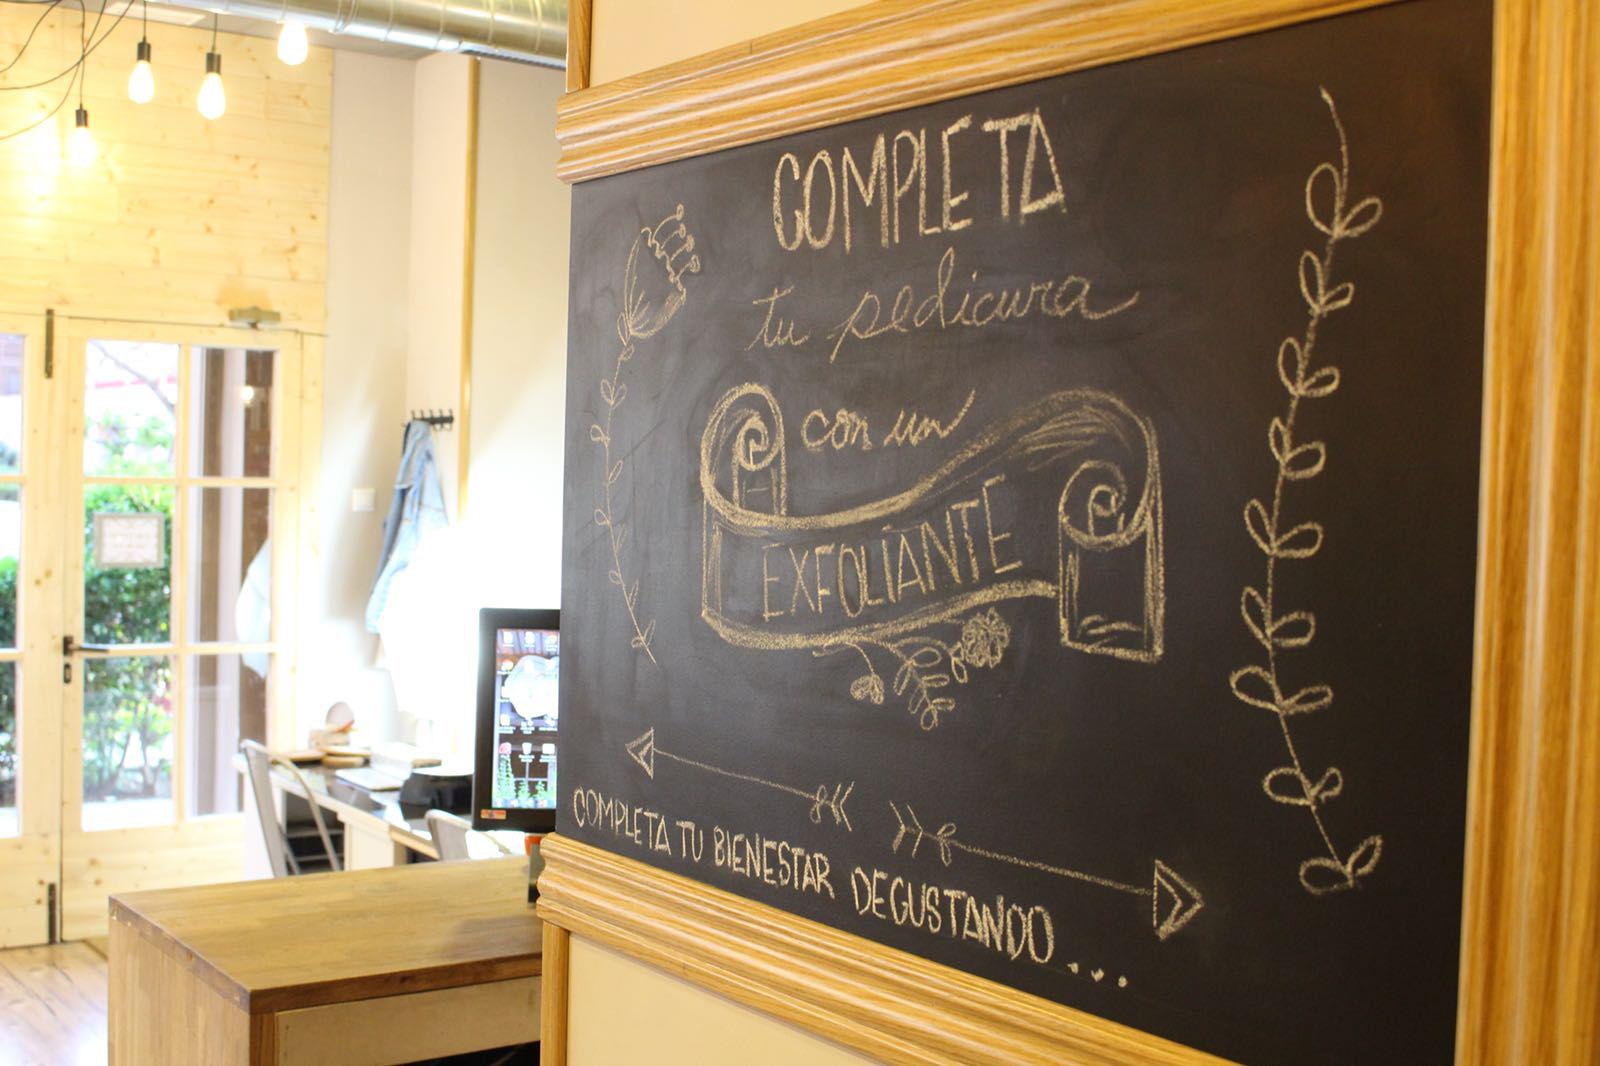 COMPLETA
tu pedicura
con un
EXFOLIANTE
COMPLETA TU BIENESTAR DEGUSTANDO...